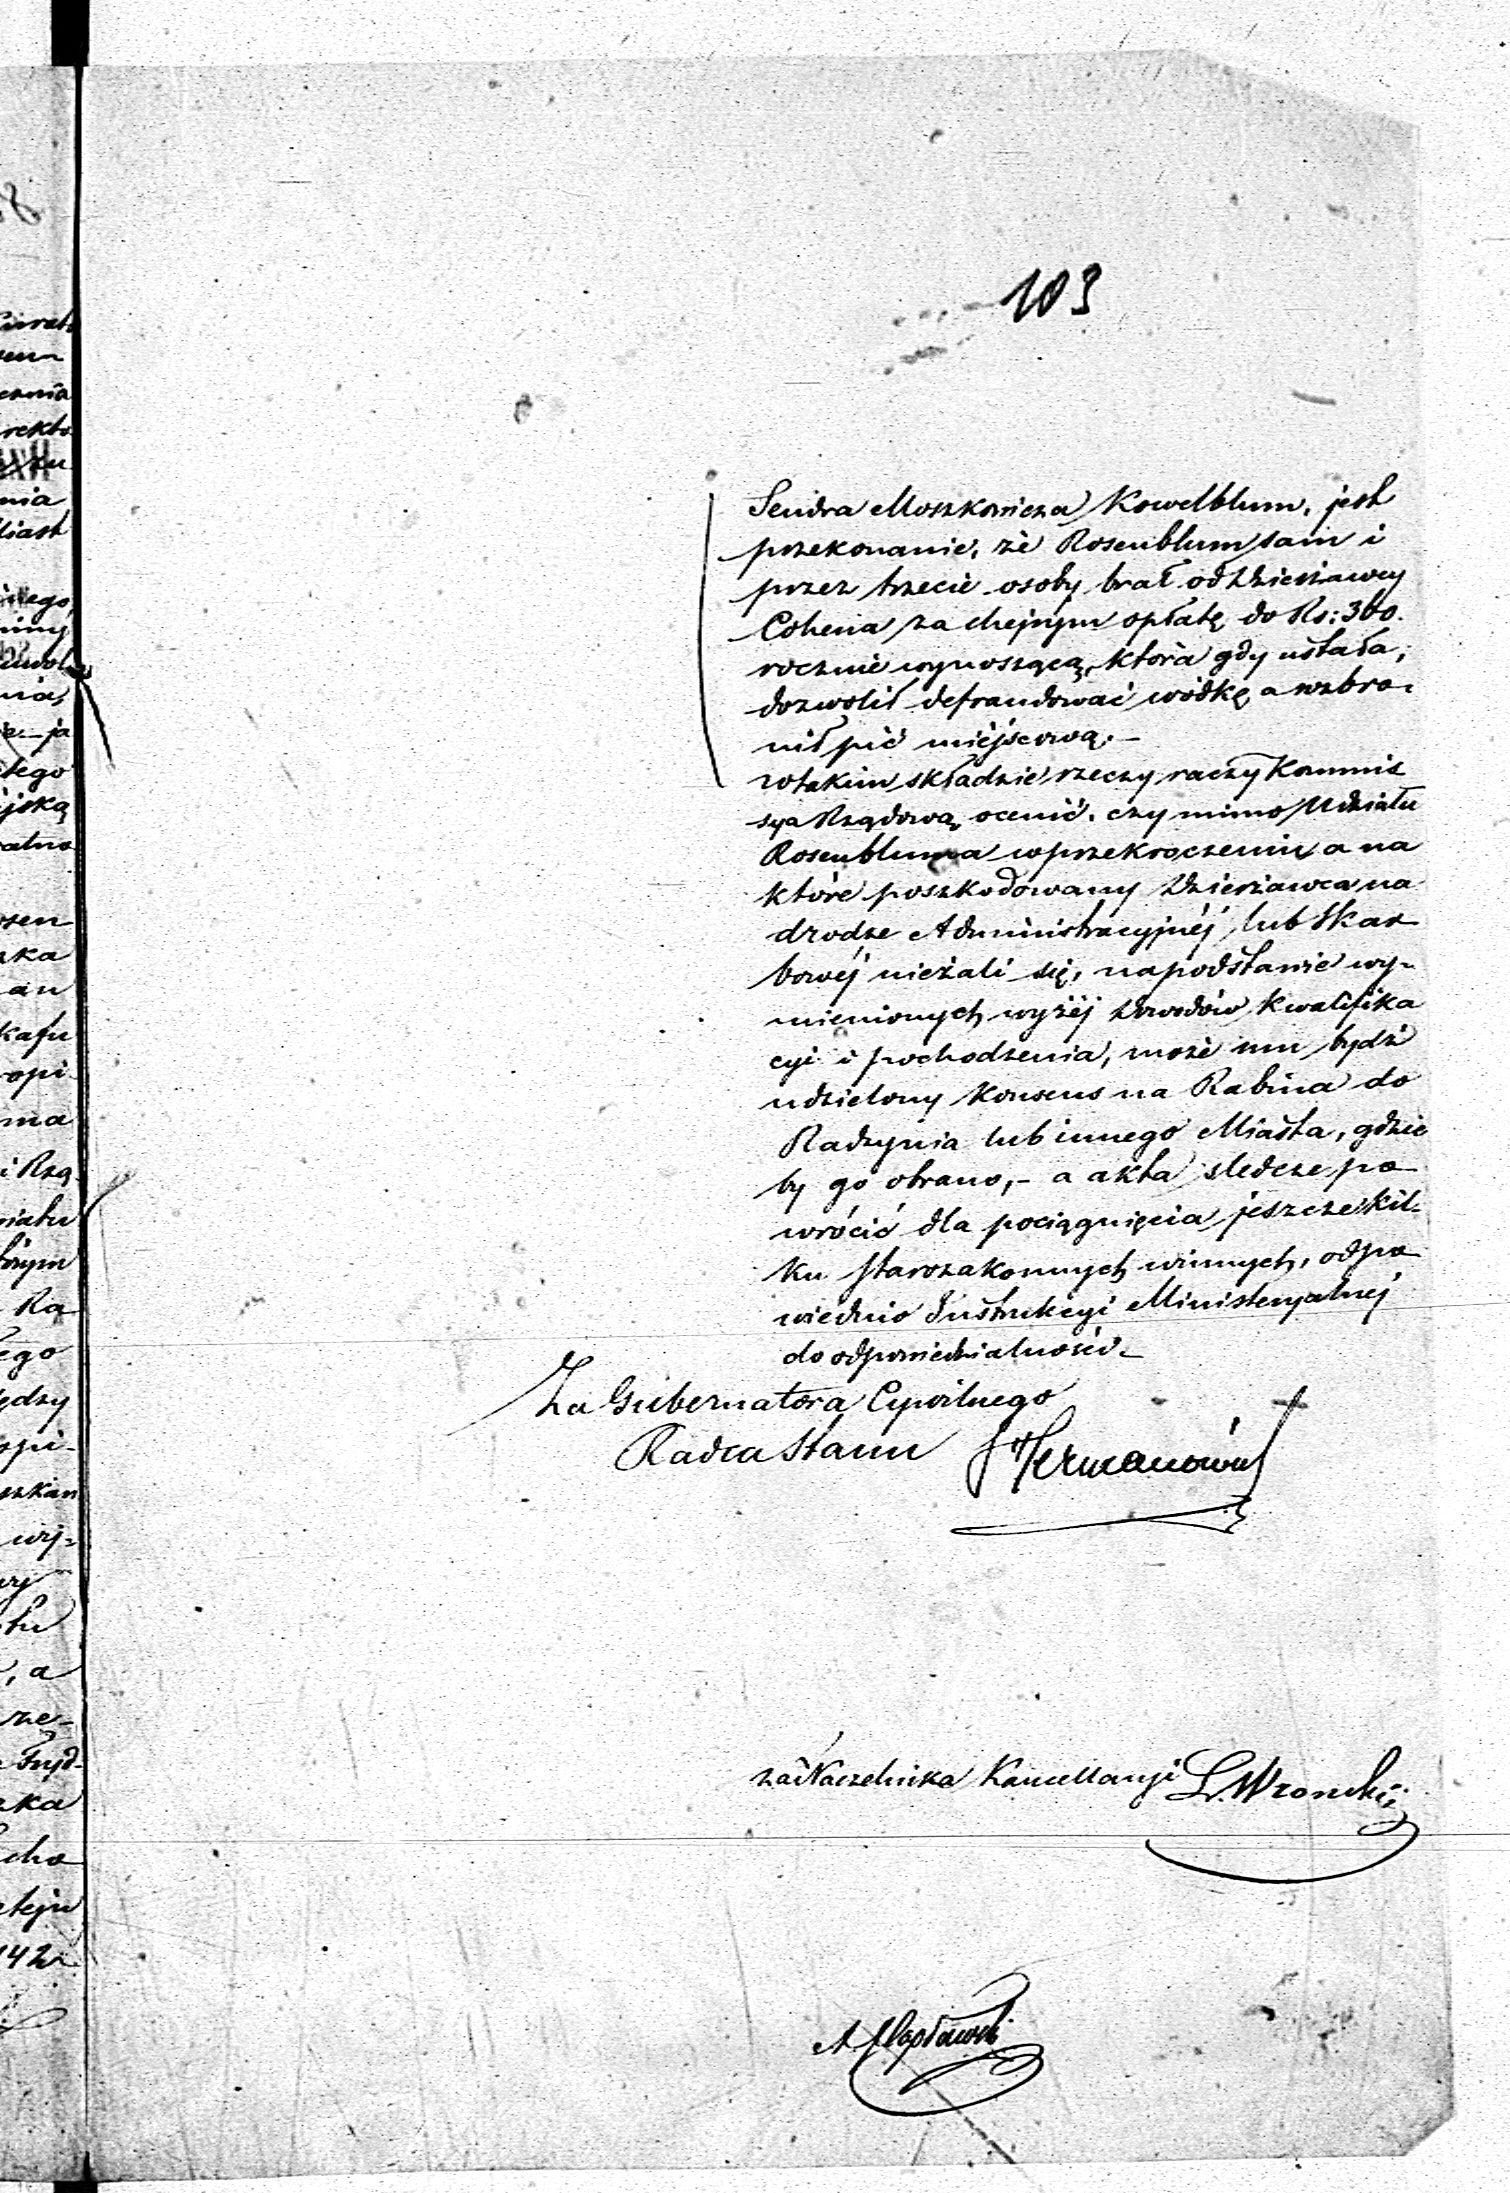 103
Sendra Moszkowicza Kowelblum, jest
przekonanie, że Rosenblum sam i
przez trzecie osoby brał od Dzierżawcy
Cohena za chejrym opłatę do Rs: 300.
rocznie wynoszącą, która gdy ustała,
dozwolił defraudować wódkę a wzbro-
nił pić miéjscową.—
W takim składzie rzeczy raczy Kommis
sya Rządowa ocenić, czy mimo Udziału
Rosenbluma w przekroczeniu a na
które poszkodowany Dzierżawca na
drodze Administracyjnéj lub Skar
bowéj nieżali się, na podstawie wy-
mienionych wyżéj Dowodów Kwalifika
cyi i pochodzenia, może mu bydź
udzielony Konsens na Rabina do
Radzynia lub innego Miasta, gdzie
by go obrano,- a akta sledcze po
wrócić dla pociągnięcia jeszcze kil-
ku Starozakonnych winnych, odpo
wiednio Instrukcyi Ministeryalnéj
do odpowiedzialności.-
Za Gubernatora Cywilnego
Radca Stanu
za Naczelnika Kancellaryi L. Wronski